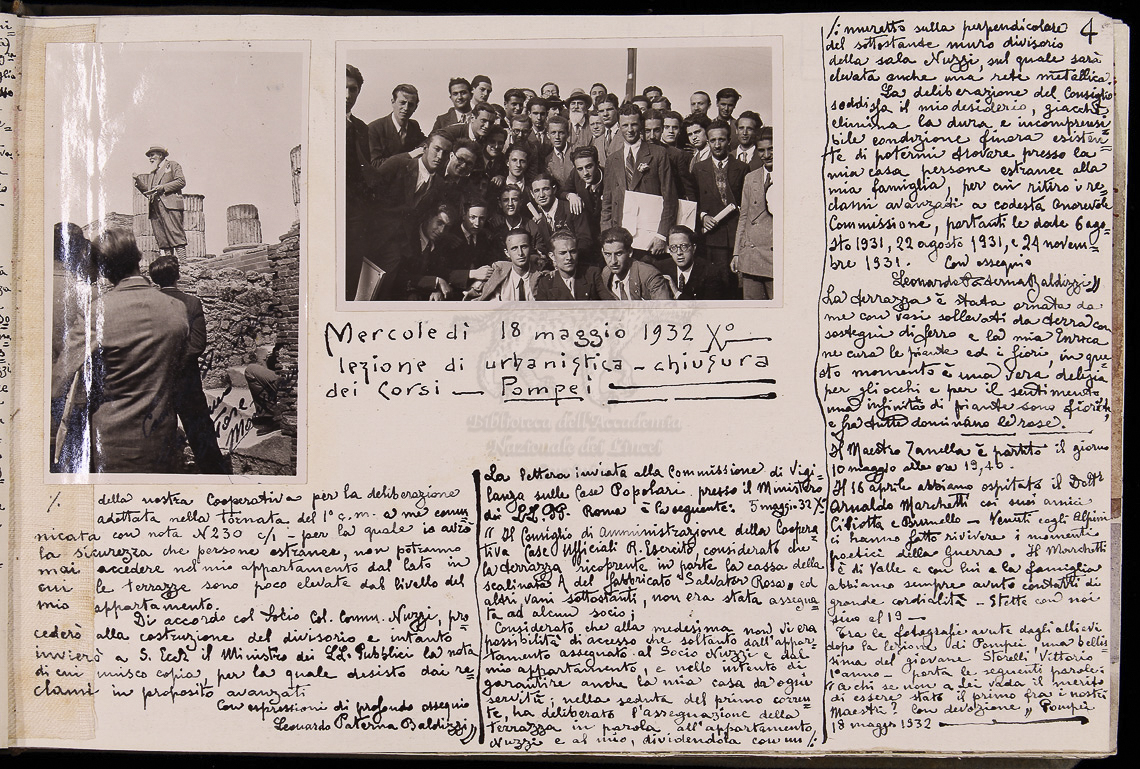 4
Mercoledì 18 maggio 1932 Xº
lezione di urbanistica - chiusura
dei Corsi - Pompei
Biblioteca dell'Accademia
Nazionale dei Lincei
./. della nostra Cooperativa per la deliberazione
adottata nella tornata del 1º c.m. a me comu=
nicata con nota N 230 c/1 - per la quale io avrò
la sicurezza che persone estranee, non potranno
mai accedere nel mio appartamento dal lato in
cui le terrazze sono poco elevate dal livello del
mio appartamento.
Di accordo col Socio Col. Comm. Nuzzi, pro=
cederò alla costruzione del divisorio e intanto
invierò a S. Ecc. il Ministro dei LL. Pubblici la nota
di cui unisco copia, per la quale desisto dai re=
clami in proposito avanzati
Con espressioni di profondo ossequio
Leonardo Paterna Baldizzi "
La lettera inviata alla Commissione di Vigi=
lanza sulle Case Popolari presso il Ministero
dei LL. PP. Roma è la seguente: 5 maggio 32 Xº
" Il Consiglio di Amministrazione della Coopera=
tiva Case Ufficiali R. Esercito, considerato che
la terrazza ricoprente in parte la cassa della
scalinata A del fabbricato "Salvator Rosa, ed
altri vani sottostanti, non era stata assegna=
ta ad alcun socio;
Considerato che alla medesima non vi era
possibilità di accesso che soltanto dall'appar=
tamento assegnato al Socio Nuzzi e dal
mio appartamento, e nello intento di
garantire anche la mia casa da ogni
servitù, nella seduta del primo corren=
te, ha deliberato l'assegnazione della
terrazza in parola all'appartamento
Nuzzi e al mio, dividendola con un ./.
./. muretto sulla perpendicolare
del sottostante muro divisorio
della sala Nuzzi, sul quale sarà
elevata anche una rete metallica.
La deliberazione del Consiglio
soddisfa il mio desiderio, giacchè
elimina la dura e incomprensi=
bile condizione finora esisten=
te di potermi trovare presso la
mia casa persone estranee alla
mia famiglia, per cui ritiro i re=
clami avanzati a codesta Onorevole
Commissione, portanti le date 6 ago=
sto 1931, 22 agosto 1931, e 24 novem=
bre 1931. Con ossequio
Leonardo Paterna Baldizzi "
La terrazza è stata ornata da
me con vasi sollevati da terra con
sostegni di ferro e la mia Enrica
ne cura le piante ed i fiori, in que=
sto momento è una vera delizia
per gli occhi e per il sentimento
una infinità di piante sono fiorite,
e fra tutte dominano le rose.
Il Maestro Zanella è partito il giorno
10 maggio alle ore 19,40.
Il 16 aprile abbiamo ospitato il Dott.
Arnaldo Marchetti coi suoi amici
Ciliotta e Brunello - Venuti cogli Alpini
ci hanno fatto rivivere i momenti
poetici della Guerra. Il Marchetti
è di Valle e con lui e la famiglia
abbiamo sempre avuto contatti di
grande cordialità - Stette con noi
sino al 19 -
Tra le fotografie avute dagli allievi
dopo la lezione di Pompei, una bellis
sima del giovane Storelli Vittorio
1º anno - porta le seguenti parole:
" A chi se non a Lei vada il merito
di essere stato il primo fra i nostri
Maestri? Con devozione " Pompei
18 maggio 1932